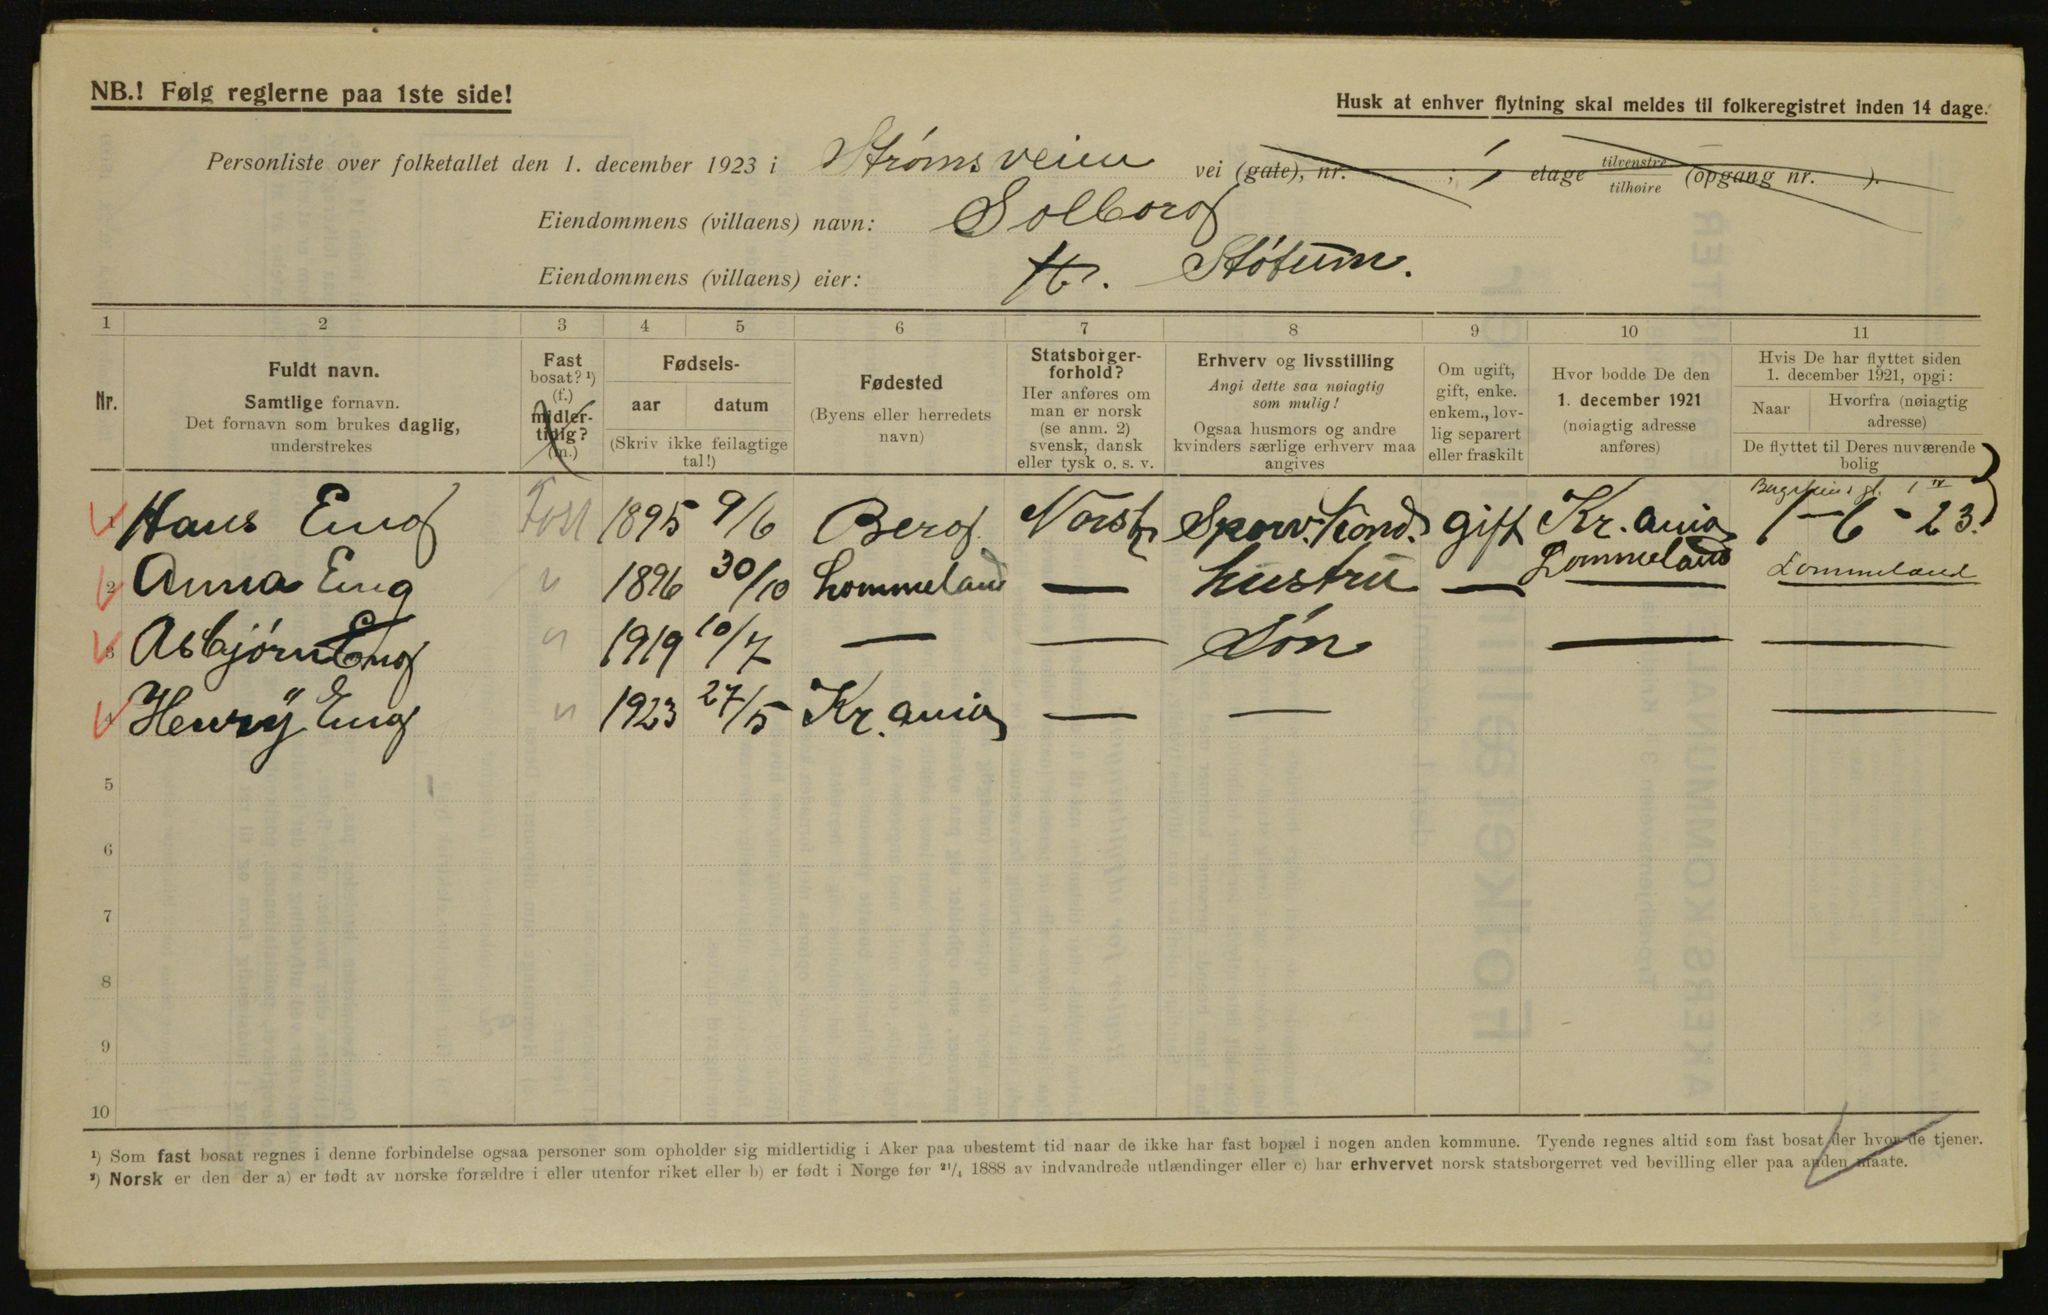 NB.! Følg reglerne paa 1ste side!
Husk at enhver flytning skal meldes til folkeregistret inden 14 dage.
Personliste over folketallet den 1. december 1923 i Strømsveien vei (gate), nr. ; etage tilvenstre tilhøire (opgang nr. ).
Eiendommens (villaens) navn: Solborg
Eiendommens (villaens) eier: H. Støtum.
1 2 3 4 5 6 7 8 9 10 11
Nr.
Fuldt navn.
Samtlige fornavn.
Det fornavn som brukes daglig,
understrekes
Fast
bosat? ¹)
(f.)
midler-
tidig?
(m.)
Fødsels-
aar datum
(Skriv ikke feilagtige
tal!)
Fødested
(Byens eller herredets
navn)
Statsborger-
forhold?
Her anføres om
man er norsk
(se anm. 2)
svensk, dansk
eller tysk o. s. v.
Erhverv og livsstilling
Angi dette saa nøiagtig
som mulig!
Ogsaa husmors og andre
kvinders særlige erhverv maa
angives
Om ugift,
gift, enke.
enkem., lov-
lig separert
eller fraskilt
Hvor bodde De den
1. december 1921
(nøiagtig adresse
anføres)
Hvis De har flyttet siden
1. december 1921, opgi:
Naar Hvorfra (nøiagtig
adresse)
De flyttet til Deres nuværende
bolig
1 Hans Eng Fast 1895 9/6 Berg Norsk Sporv. Kond. gift Kr.ania 1-6-23.
2 Anna Eng " 1896 30/10 Lommeland — hustru — Lommeland Lommeland
3 Asbjørn Eng " 1919 10/7 — — Søn — —
4 Henry Eng " 1923 27/5 Kr.ania — — —
5
6
7
8
9
10
¹) Som fast bosat regnes i denne forbindelse ogsaa personer som opholder sig midlertidig i Aker paa ubestemt tid naar de ikke har fast bopæl i nogen anden kommune. Tyende regnes altid som fast bosat der hvor de tjener.
²) Norsk er den der a) er født av norske forældre i eller utenfor riket eller b) er født i Norge før ²¹/₄ 1888 av indvandrede utlændinger eller c) har erhvervet norsk statsborgerret ved bevilling eller paa anden maate.